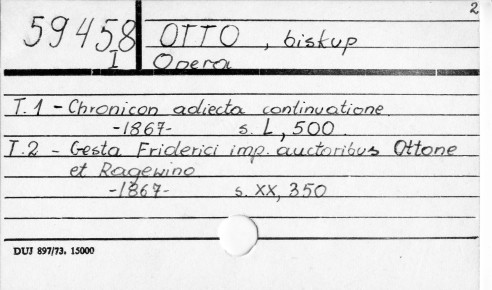 2
59458 OTTO, biskup
I Opera
T. 1 - Chronicon adiecta continuatione
-1867- s. L, 500
T. 2 - Gesta Friderici imp. auctoribus Ottone
et Ragewino
-1867- s. XX, 350
DUJ 897/73. 15000